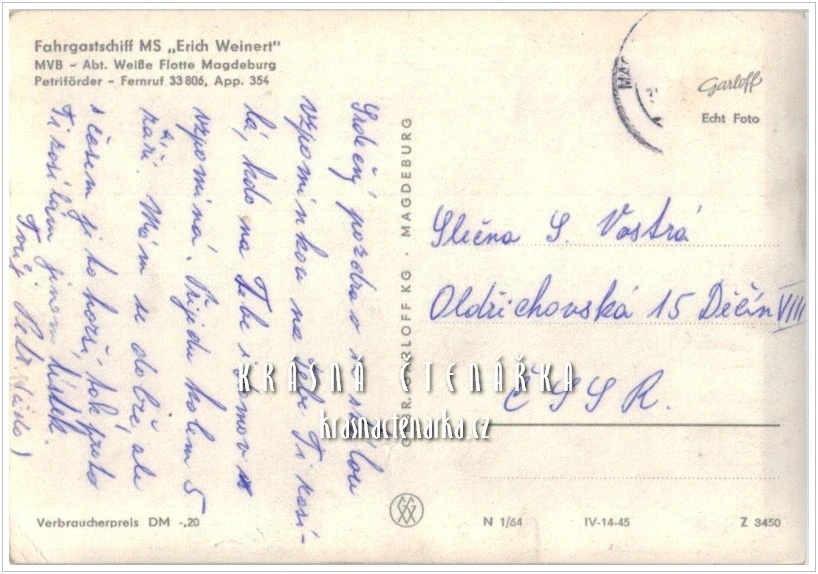 Fahrgastschiff MS „Erich Weinert"
MVB - Abt. Weiße Flotte Magdeburg
Petriförder - Fernruf 33 806, App. 354
Srdečný pozdrav s
vzpomínkou na Tebe Ti posí-
lá, kdo na Tebe
vzpomíná. Přijedu kolem 5
září. Mám se dobře, ale
s časem je to horší, tak proto
Ti posílám jenom lístek.
Tvůj Petr
GEBR. GARLOFF KG · MAGDEBURG
MAG
Garloff
Echt Foto
Slečna S. Vostrá
Oldřichovská 15 Děčín VIII
ČSSR.
KRÁSNÁ ČTENÁŘKA
krasnactenarka.cz
Verbraucherpreis DM -,20
N 1/64 IV-14-45 Z 3450